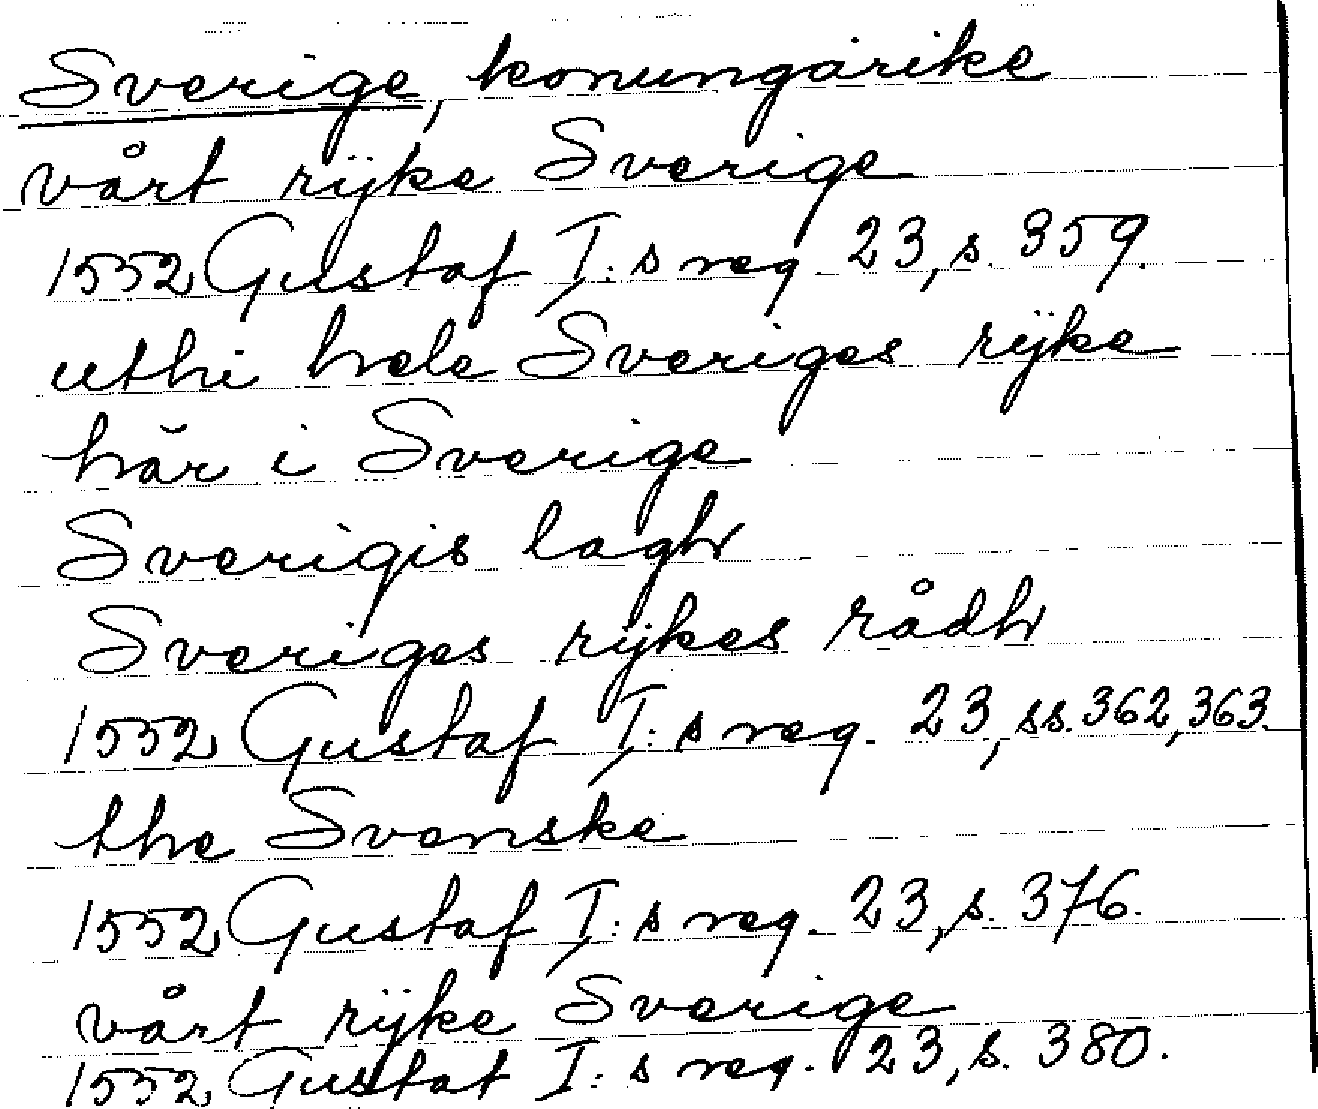 Sverige, konungarike
vårt rÿke Sverige
1552 Gustaf I:s reg. 23, s. 359.
uthi hele Sveriges rÿke
här i Sverige
Sverigis lagh
Sveriges rÿkes rådh
1552 Gustaf I:s reg. 23, ss. 362, 363.
the Svenske
1552 Gustaf I:s reg. 23, s. 376.
vårt rÿke Sverige
1552 Gustaf I:s reg. 23, s. 380.